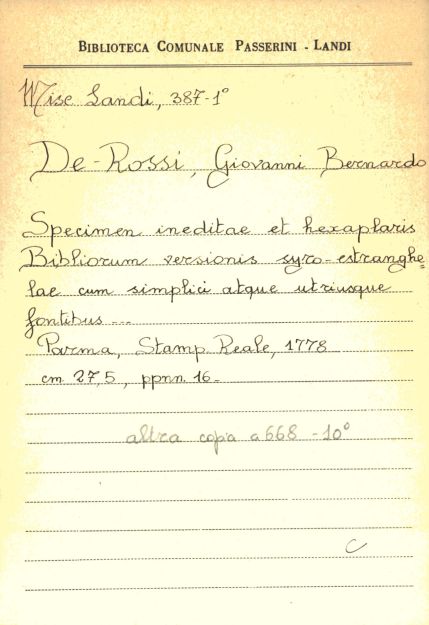 BIBLIOTECA COMUNALE PASSERINI - LANDI
Misc Landi, 387-1°
De-Rossi, Giovanni Bernardo
Specimen ineditae et hexaplaris
Bibliorum versionis syro-estranghe=
lae cum simplici atque utriusque
fontibus ...
Parma, Stamp. Reale, 1778
cm. 27,5, ppnn. 16.
altra copia a 668 - 10°
C